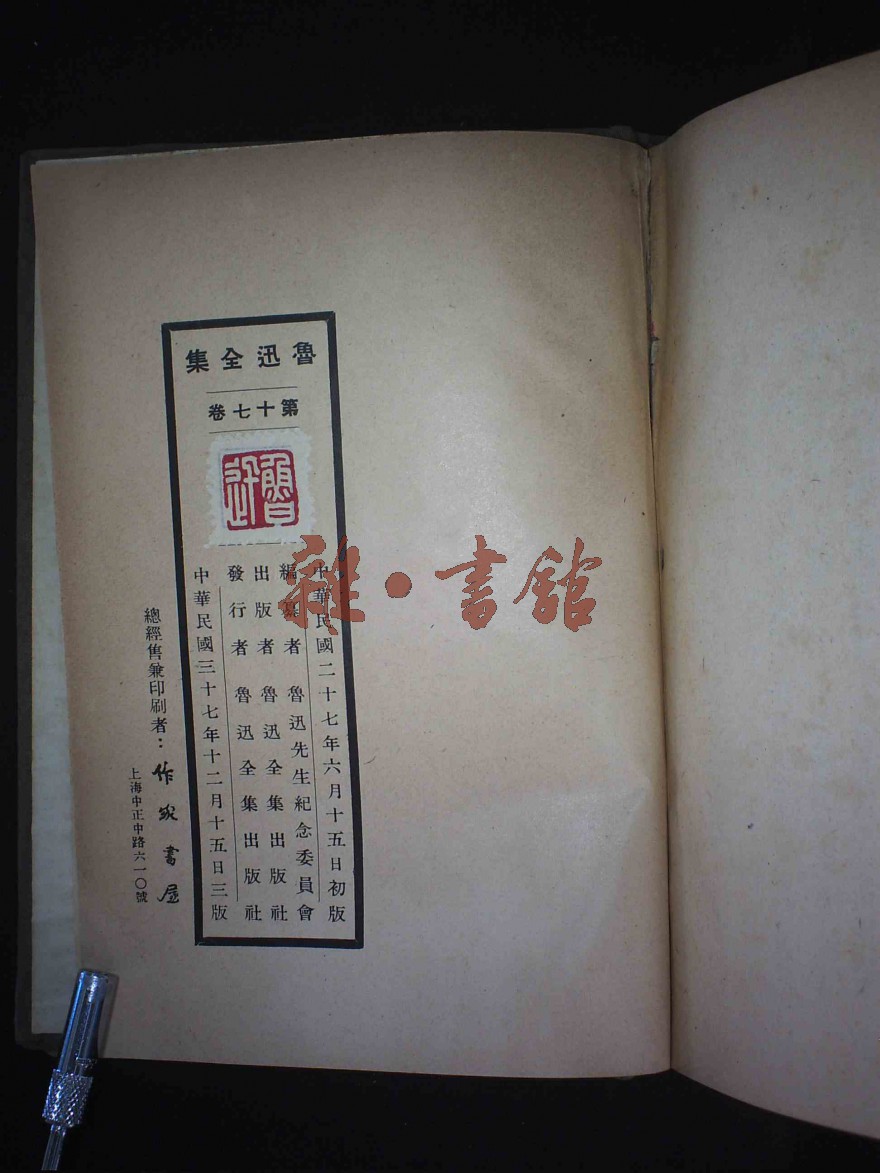 魯迅全集
第十七卷
魯迅
中華民國二十七年六月十五日初版
編纂者 魯迅先生紀念委員會
出版者 魯迅全集出版社
發行者 魯迅全集出版社
中華民國三十七年十二月十五日三版
總經售兼印刷者：作家書屋
上海中正中路六一〇號
雜·書館